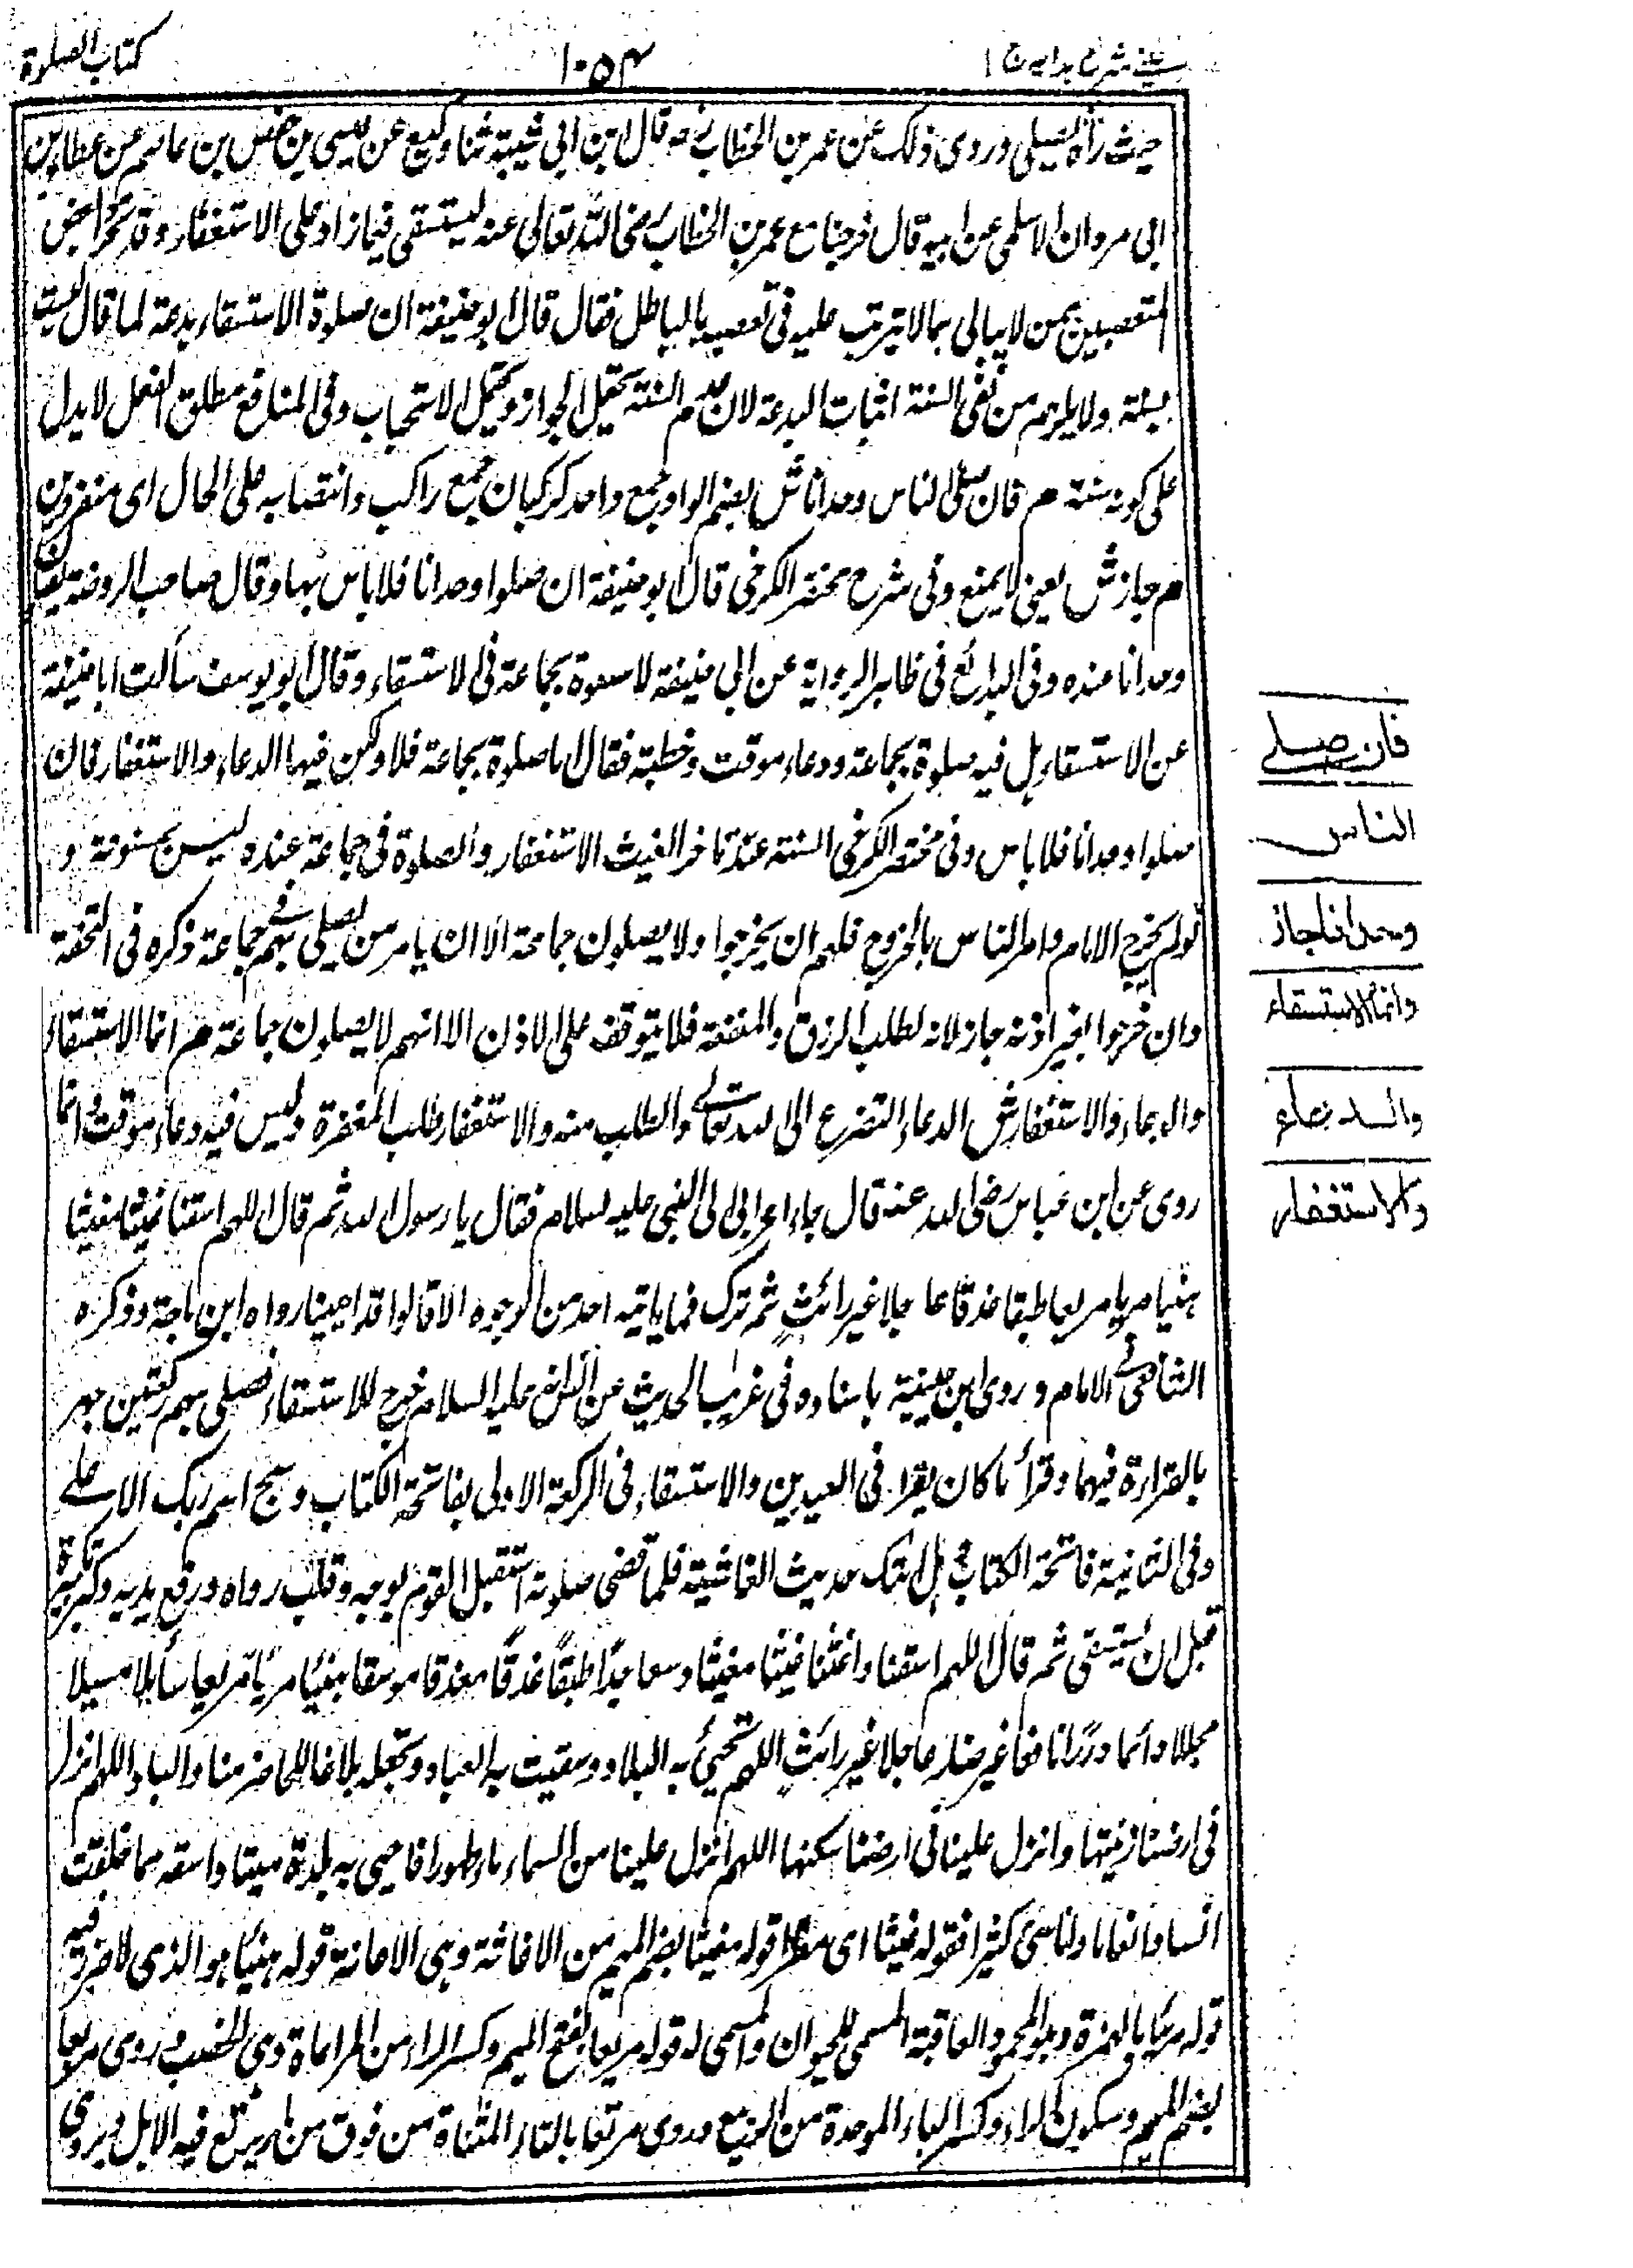 عينى شرح هدايه ج ١
١٠٥٤
كتاب الصلوة
حيث رآه ليصلى وروى ذلك عن عمر بن الخطاب رض قال ابن ابى شيبة ثنا وكيع عن عيسى بن حفص بن عاصم عن عطاء بن
ابى مروان الاسلمى عن ابيه قال خرجنا مع عمر بن الخطاب رضى الله تعالى عنه ليستسقى فما زاد على الاستغفار وقد تجرأ بعض
المتعصبين ممن لا يبالى بما لا يترتب عليه فى تعصبه بالباطل فقال قال ابو حنيفة ان صلوة الاستسقاء بدعة لما قال ليست
بسنة ولا يلزم من نفى السنة اثبات البدعة لان عدم السنة يحتمل الجواز ويحتمل الاستحباب وفى المنافع مطلق الفعل لا يدل
على كونه سنة م فان صلى الناس وحدانا ش بضم الواو جمع واحد كركبان جمع راكب وانتصابه على الحال اى منفردين
م جاز ش يعنى لا يمنع وفى شرح مختصر الكرخى قال ابو حنيفة ان صلوا وحدانا فلا باس بها وقال صاحب الروضة
وحدانا عنده وفى البدائع فى ظاهر الرواية عن ابى حنيفة لا صلوة بجماعة فى الاستسقاء وقال ابو يوسف سألت ابا حنيفة
عن الاستسقاء هل فيه صلوة بجماعة ودعاء موقت وخطبة فقال اما صلوة بجماعة فلا ولكن فيها الدعاء والاستغفار فان
صلوا وحدانا فلا باس وفى مختصر الكرخى السنة عند تاخر الغيث الاستغفار والصلوة فى جماعة عنده ليس بمسنونة و
لو لم يخرج الامام وامر الناس بالخروج فلهم ان يخرجوا ولا يصلون جماعة الا ان يامر من يصلى بهم فى جماعة ذكره فى التحفة
وان خرجوا بغير اذنه جاز لانه لطلب الرزق والمنفعة فلا يتوقف على الاذن الا انهم لا يصلون جماعة م انما الاستسقاء
والدعاء والاستغفار ش الدعاء التضرع الى الله تعالى والطلب منه والاستغفار طلب المغفرة وليس فيه دعاء موقت وانما
روى عن ابن عباس رضى الله عنه قال جاء اعرابى الى النبى عليه السلام فقال يا رسول الله ثم قال اللهم اسقنا غيثا مغيثا
هنيا مريا مريعا طبقا غدقا عاجلا غير رائث ثم ترك فما ياتيه احد من الوجوه الا قالوا قد احيينا رواه ابن ماجة وذكره
الشافعى فى الامام وروى ابن عيينة باسناده فى غريب الحديث عن انس انه عليه السلام خرج للاستسقاء فصلى بهم ركعتين جهر
بالقراءة فيهما وقرأ ما كان يقرا فى العيدين والاستسقاء فى الركعة الاولى بفاتحة الكتاب وسبح اسم ربك الاعلى
وفى الثانية فاتحة الكتاب وهل اتٰك حديث الغاشية فلما قضى صلوته استقبل القوم بوجهه وقلب رداه ورفع يديه وكبر تكبيرة
قبل ان يستسقى ثم قال اللهم اسقنا واغثنا غيثا مغيثا وسعا جدًا طبقًا غدقًا مغدقا مونقا هنيئا مريًا مريعا سابلا مسبلا
مجللا دائما دررًا نافعا غير ضار عاجلا غير رائث اللهم تحيئ به البلاد وسقيت به العباد وتجعله بلاغا للحاضر منا والباد اللهم انزل
فى ارضنا زينتها وانزل علينا فى ارضنا سكنها اللهم انزل علينا من السماء ماء طهورا فاحيى به بلدة ميتا واسقه مما خلقت
انعاما واناسى كثيرا فقوله غيثا اى مطرا قوله مغيثا بضم الميم من الاغاثة وهى الاعانة قوله هنيئا هو الذى لا ضرر فيه
قوله مريئا بالهمزة وهو المحمود العاقبة المسمى للحيوان والمسمى له قوله مريعا بفتح الميم وكسر الراء من المراعاة وهى الخصب وروى مربعا
بضم الميم وسكون الراء وكسر الباء الموحدة من الربيع وروى مرتعا بالتاء المثناة من فوق من ما يرتع فيه الابل ويروى
فان صلى
الناس
وحدانا جاز
وانما الاستسقاء
والدعاء
والاستغفار